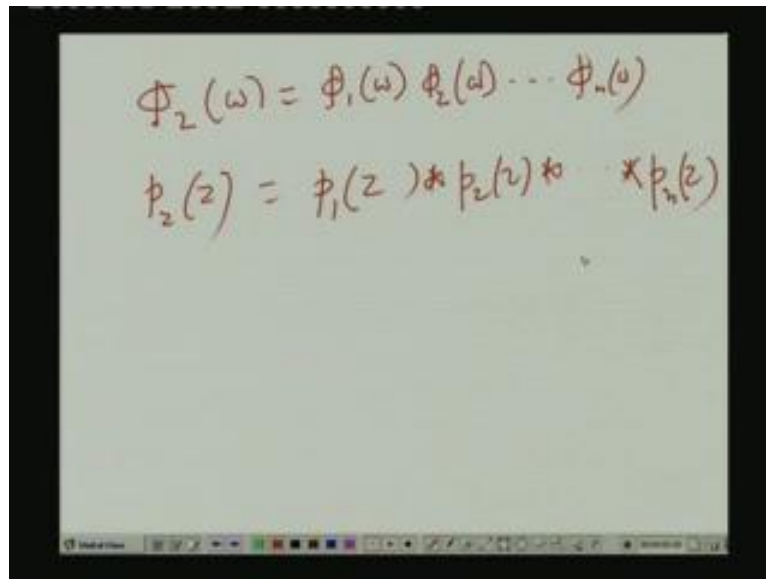 Φ₂(ω) = Φ₁(ω) Φ₂(ω) ... Φₙ(ω)
p₂(z) = p₁(z) * p₂(z) * ... * pₙ(z)